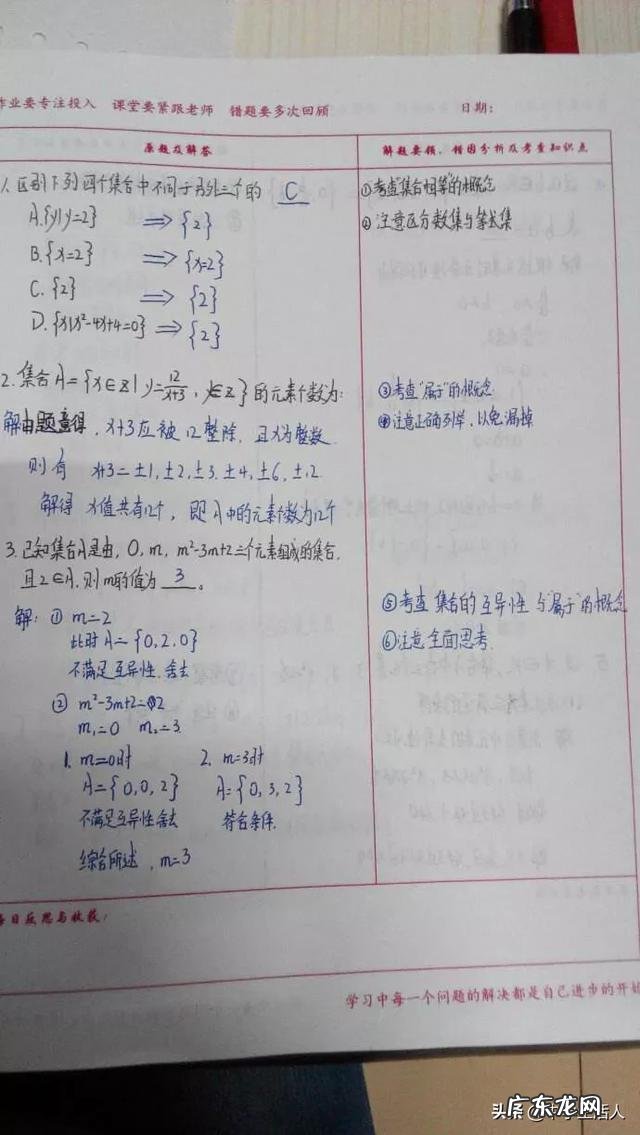 作业要专注投入 课堂要紧跟老师 错题要多次回顾 日期:
原题及解答
解题要领、错因分析及考查知识点
1. 区别下列四个集合中不同于另外三个的 C
A.{y|y=2} ⇒ {2}
B.{x=2} ⇒ {x=2}
C.{2} ⇒ {2}
D.{x|x²-4x+4=0} ⇒ {2}
①考查"集合相等"的概念
②注意区分数集与等式集
2. 集合A={x∈Z|y=12/(x+3), y∈Z}的元素个数为:
解由题意得, x+3应被12整除, 且x为整数
则有 x+3=±1,±2,±3,±4,±6,±12
解得 x值共有12个, 即A中的元素个数为12个
③考查"属于"的概念
④注意正确列举,以免漏掉
3. 已知集合A是由, 0, m, m²-3m+2三个元素组成的集合,
且2∈A,则m的值为 3 。
解: ① m=2
此时A={0,2,0}
不满足互异性,舍去
② m²-3m+2=2
m₁=0 m₂=3
1. m=0时 2. m=3时
A={0,0,2} A={0,3,2}
不满足互异性,舍去 符合条件.
综合所述, m=3
⑤考查集合的互异性与"属于"的概念
⑥注意全面思考
每日反思与收获:
学习中每一个问题的解决都是自己进步的开始
头条
广东龙网
生活人